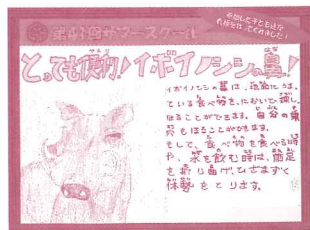 第43回サマースクール
参加した子どもたちが
看板を作ってくれました！
とっても便利！イボイノシシの鼻！
イボイノシシの鼻は、地面にうまっ
ている食べ物を、においで探し、
ほることができます。自分の巣
穴もほることができます。
そして、食べ物を食べる時
や、水を飲む時は、前足
を折り曲げ、ひざまずく
体勢をとります。